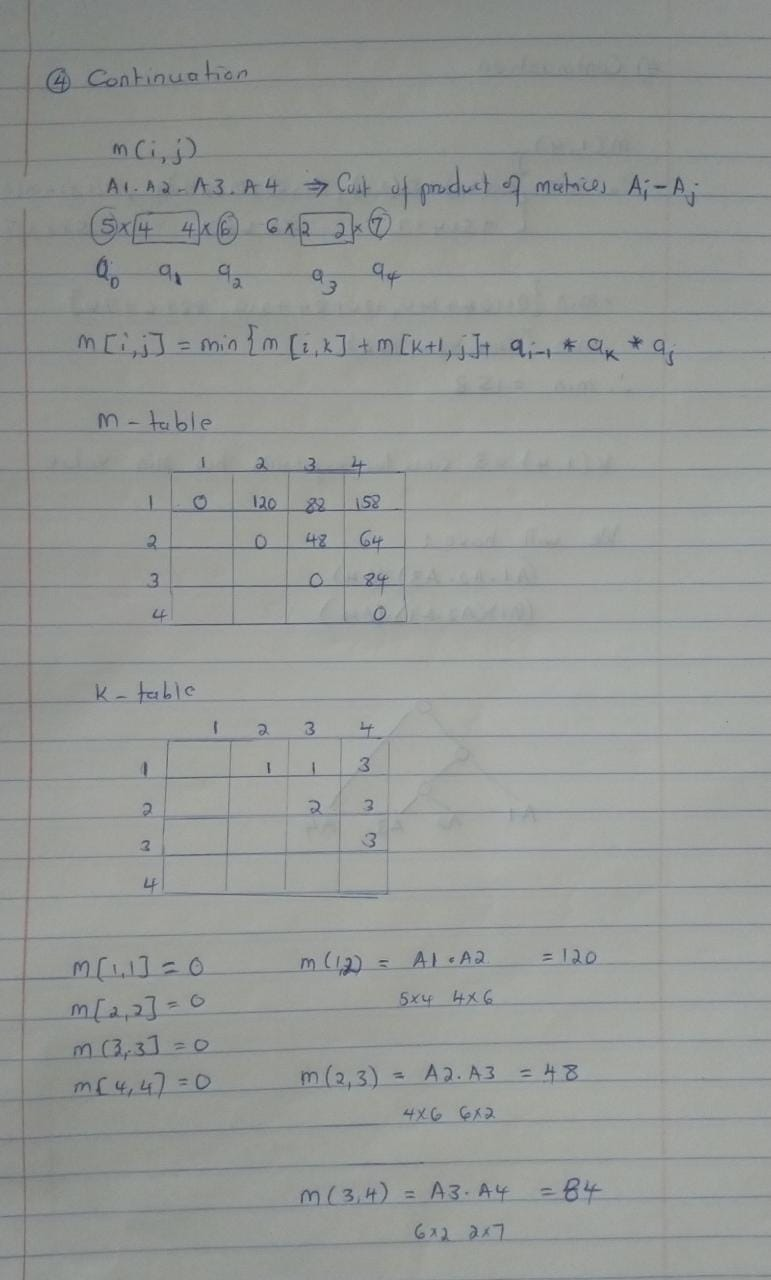 ④ Continuation
m(i,j)
A1.A2-A3.A4 ⇒ Cost of product of matrices Ai-Aj
5×4 4×6 6×2 2×7
a0 a1 a2 a3 a4
m[i,j] = min{m[i,k] + m[k+1,j]+ ai-1 * ak * aj
m-table
1 2 3 4
1 0 120 88 158
2 0 48 64
3 0 84
4 0
K-table
1 2 3 4
1 1 1 3
2 2 3
3 3
4
m[1,1] = 0 m(1,2) = A1.A2 = 120
5×4 4×6
m[2,2] = 0
m(3,3] = 0
m[4,4] = 0 m(2,3) = A2.A3 = 48
4×6 6×2
m(3,4) = A3.A4 = 84
6×2 2×7